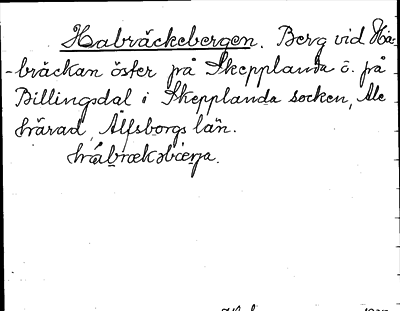 Habräckebergen. Berg vid Ha-
-bräckan öster på Skepplanda ö. på
Dillingsdal i Skepplanda socken, Ale
härad, Älfsborgs län.